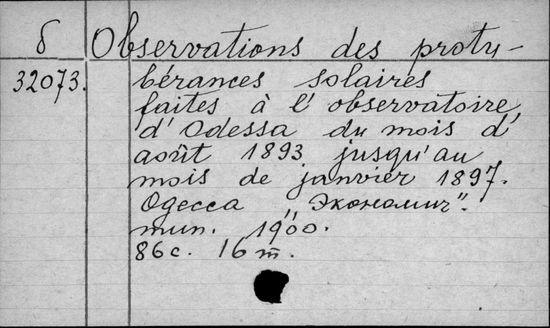 б Observations des protu-
32073. bérances solaires
faites à l'observatoire
d'Odessa du mois d'
août 1893 jusqu'au
mois de janvier 1897.
Одесса „Экономич".
тип. 1900.
86 с. 16 m̄.